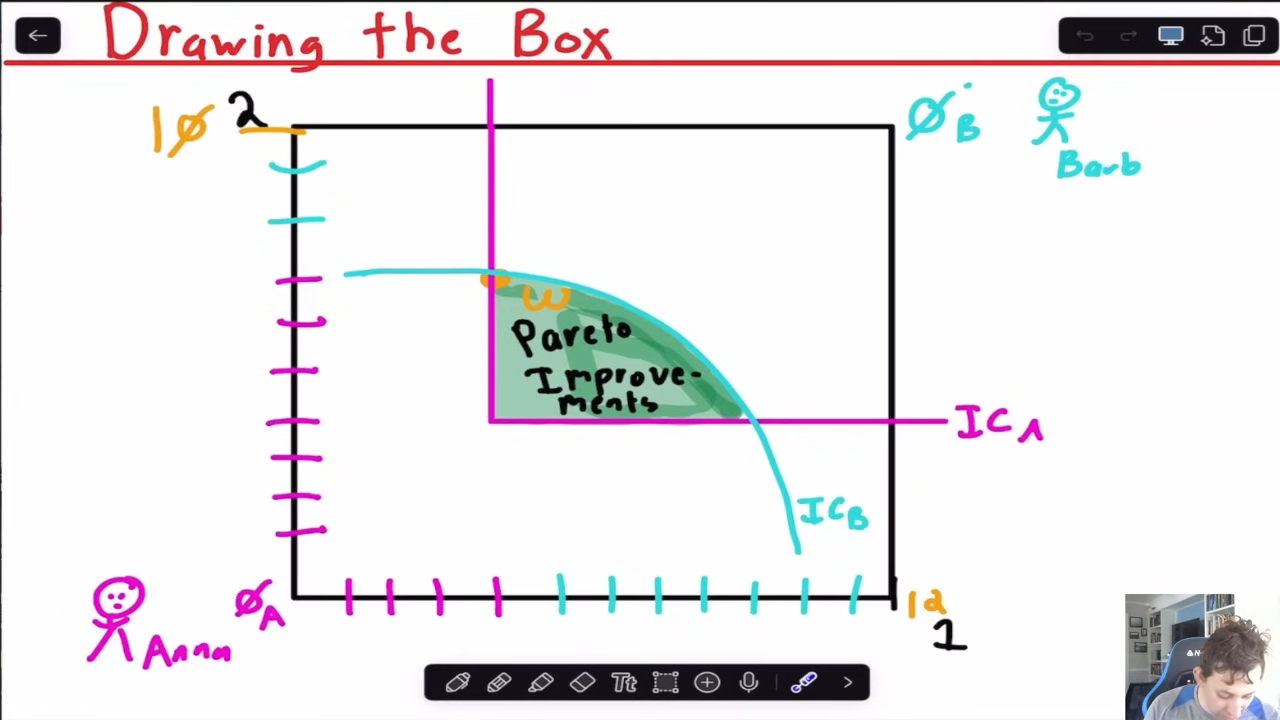 Drawing the Box
10 2
0B
Barb
ω
Pareto
Improve-
ments
ICA
ICB
0A
Anna
12
1
Tt